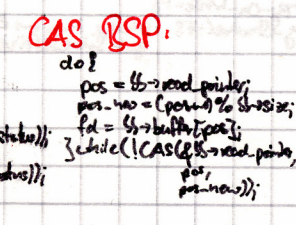 CAS BSP.
do {
pos = ss->read_pointer;
pos_new = (pos+1) % ss->size;
fd = ss->buffer[pos];
status));
} while (!CAS(&ss->read_pointer,
pos,
pos_new));